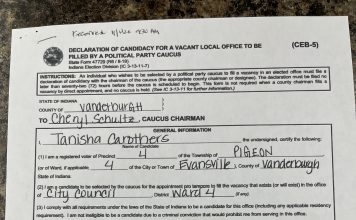 DECLARATION OF CANDIDACY FOR A VACANT LOCAL OFFICE TO BE
(CEB-5)
FILLED BY A POLITICAL PARTY CAUCUS
Indiana Election Division (IC 3-13-11-7)
INSTRUCTIONS: An individual who wishes to be selected by a political party caucus to fill a vacancy in an elected office must file a
declaration of candidacy with the chairman of the caucus (the appropriate county chairman or designee). The declaration must be filed no
later than seventy-two (72) hours before the caucus is scheduled to begin. This form is not required when a county chairman fills a
vacancy by direct appointment, and no caucus is held. (See IC 3-13-11-1 for further information.)
STATE OF INDIANA
COUNTY OF Vanderburgh
TO Cheryl Schultz, CAUCUS CHAIRMAN
GENERAL INFORMATION
I, Tanisha Carothers, the undersigned, certify the following:
Name of Candidate
(1) I am a registered voter of Precinct 4 of the Township of PIGEON
(or of Ward, if applicable 4 of the City or Town of Evansville), County of Vanderburgh
State of Indiana.
(2) I am a candidate to be selected by the caucus for the appointment pro tempore to fill the vacancy that exists (or will exist) in the office
of City Council Ward 4
(3) I comply with all requirements under the laws of the State of Indiana to be a candidate for this office (including any applicable residency
requirements). I am not ineligible to be a candidate due to a criminal conviction that would prohibit me from serving in this office.